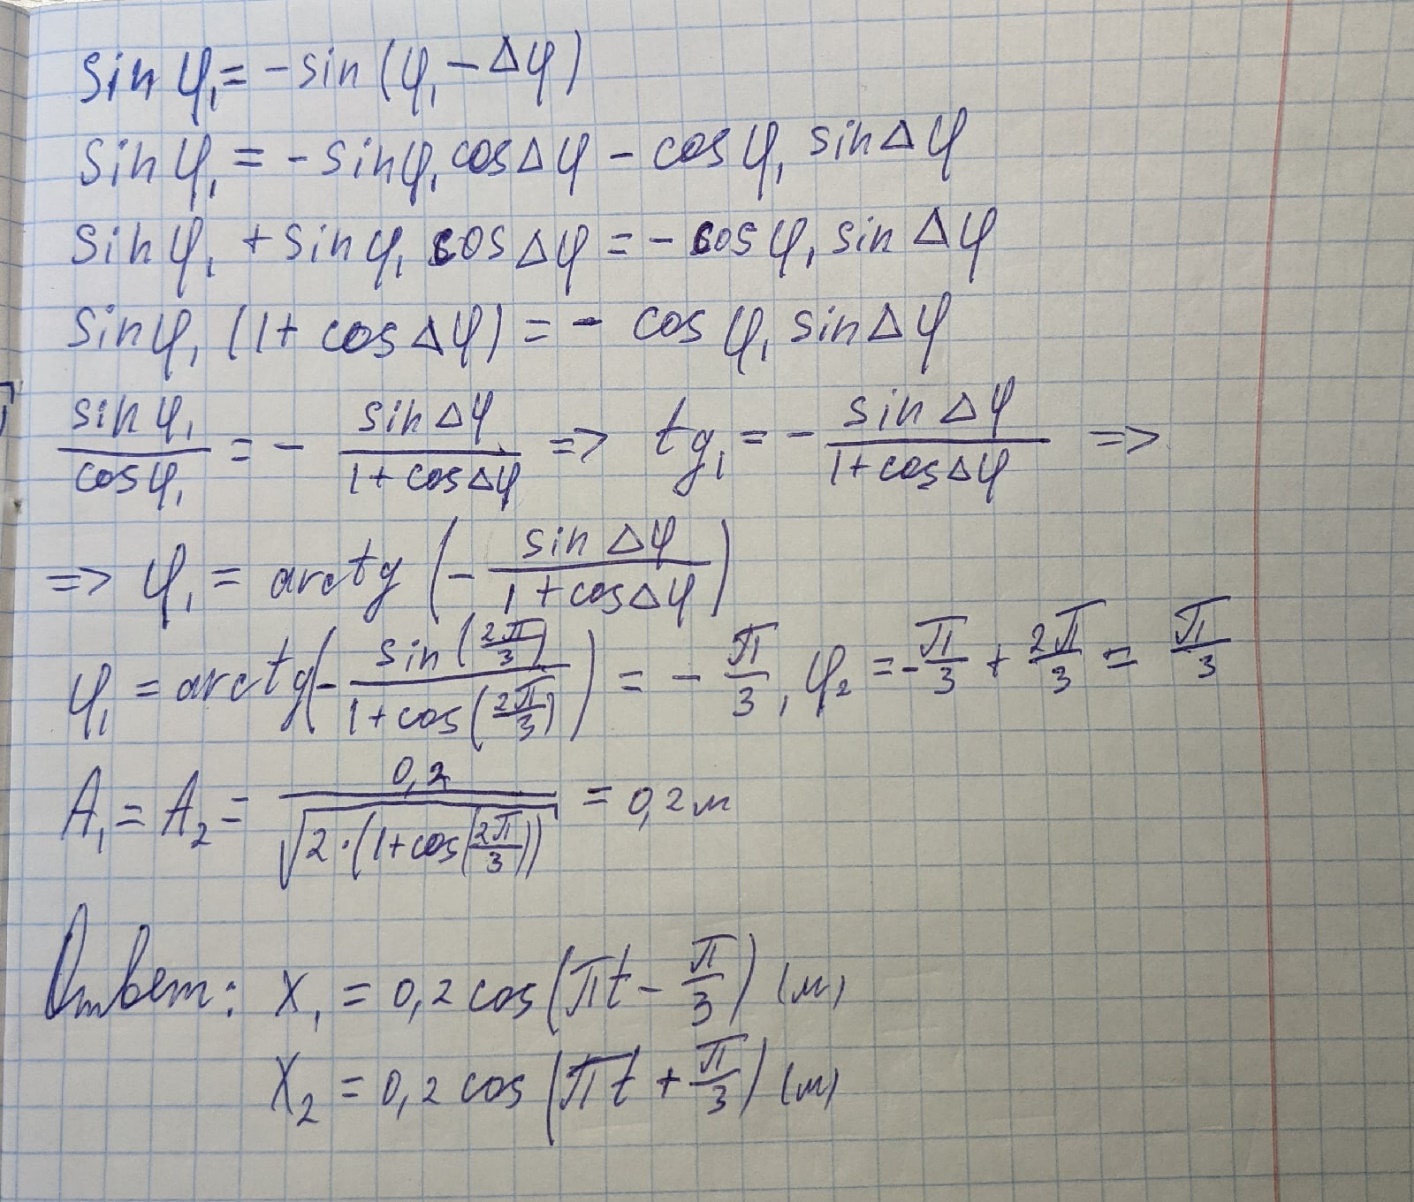 sin φ₁ = -sin (φ₁ - Δφ)
sin φ₁ = - sinφ₁ cosΔφ - cosφ₁ sinΔφ
sin φ₁ + sin φ₁ cosΔφ = - cosφ₁ sin Δφ
sinφ₁ (1 + cosΔφ) = - cos φ₁ sinΔφ
sin φ₁ / cosφ₁ = - sinΔφ / (1 + cosΔφ) => tg₁ = - sin Δφ / (1 + cosΔφ) =>
=> φ₁ = arctg (- sin Δφ / (1 + cosΔφ))
φ₁ = arctg(- sin(2π/3) / (1 + cos(2π/3))) = - π/3, φ₂ = -π/3 + 2π/3 = π/3
A₁ = A₂ = 0,2 / √(2·(1+cos(2π/3))) = 0,2 м
Ответ: x₁ = 0,2 cos(πt - π/3) (м)
x₂ = 0,2 cos(πt + π/3) (м)